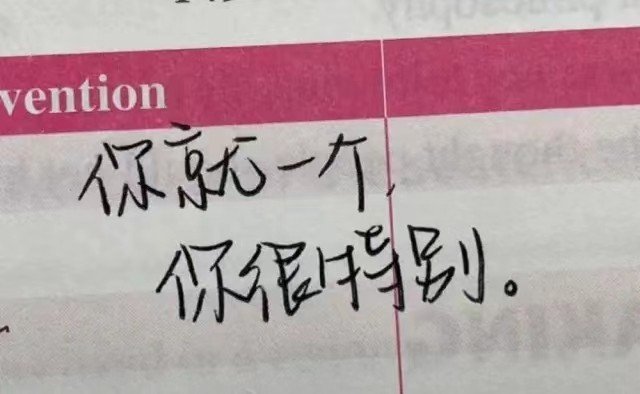 vention
你就一个,
你很特别。